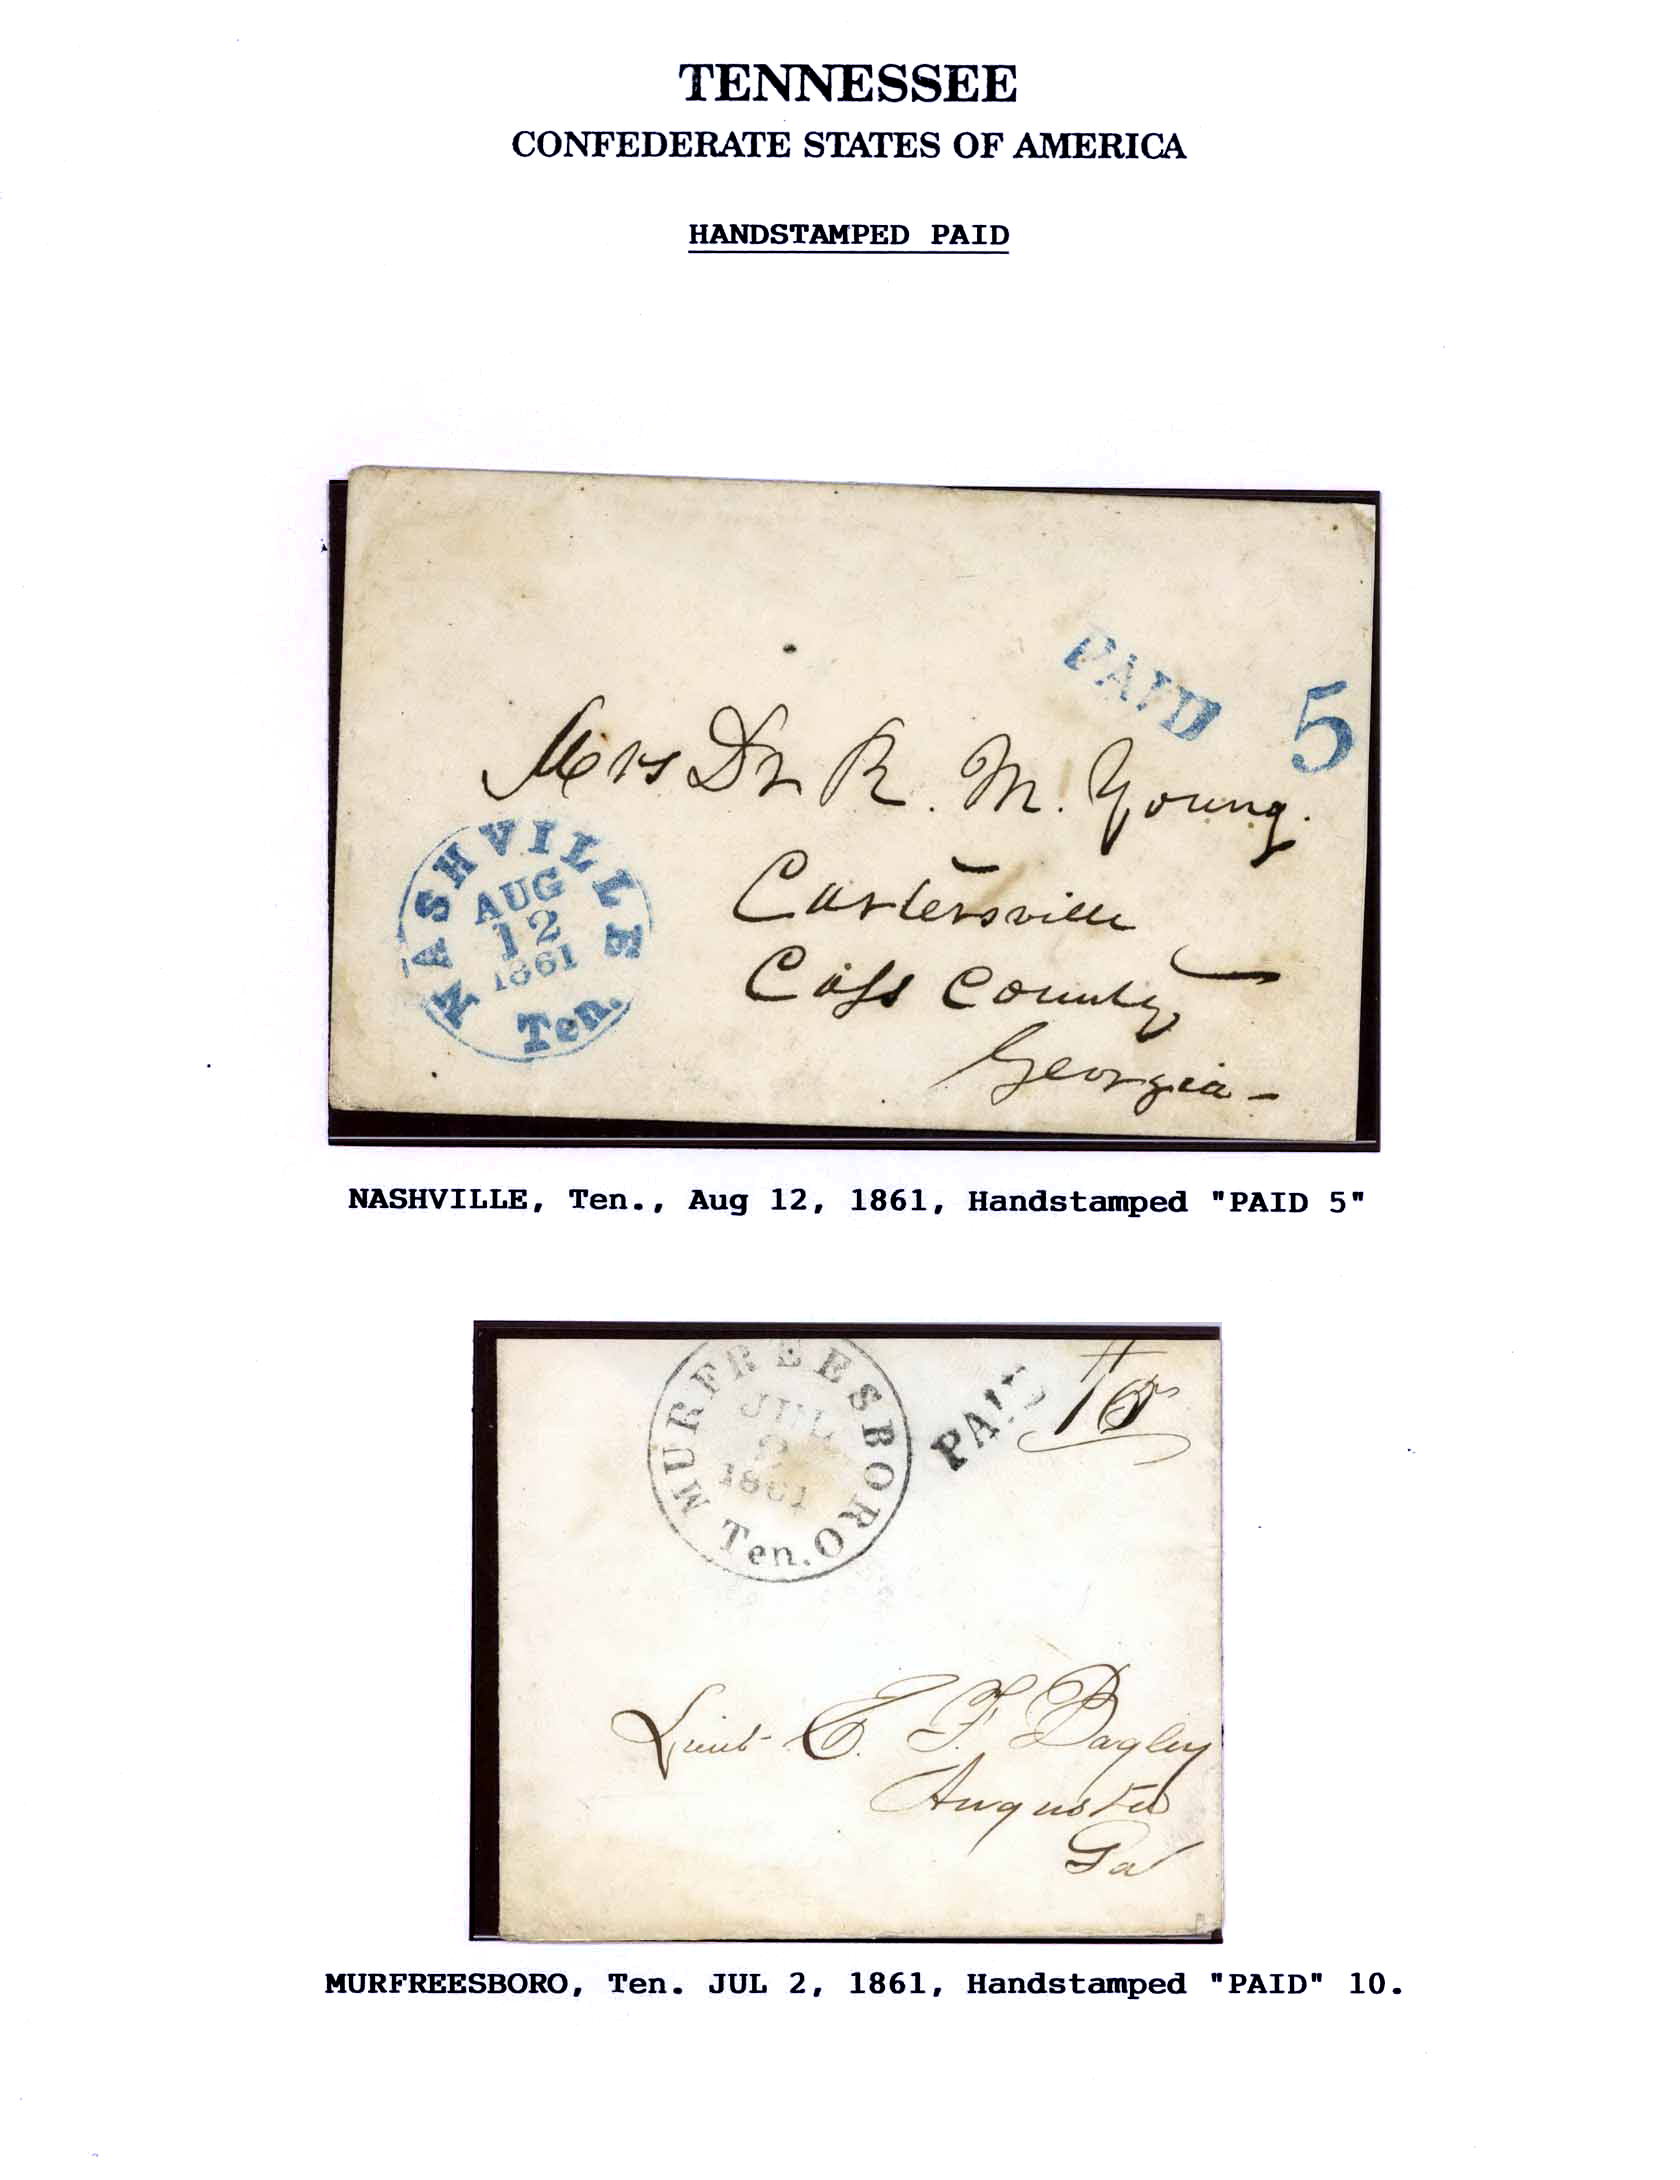 TENNESSEE
CONFEDERATE STATES OF AMERICA
HANDSTAMPED PAID
PAID
5
Mrs Dr R. M. Young.
Cartersville
Cass County
Georgia -
NASHVILLE
AUG
12
1861
Ten.
NASHVILLE, Ten., Aug 12, 1861, Handstamped "PAID 5"
MURFREESBORO
JUL
2
1861
Ten.
PAID
10
Lieut E. F. Bagley
Augusta
Ga
MURFREESBORO, Ten. JUL 2, 1861, Handstamped "PAID" 10.